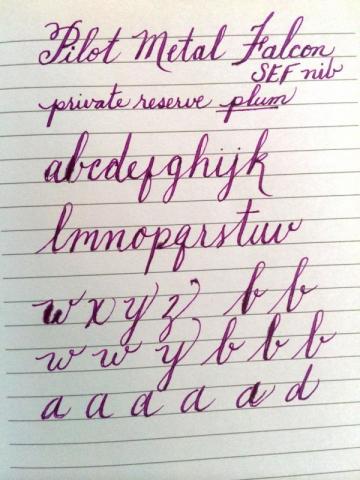 Pilot Metal Falcon
SEF nib
private reserve plum
abcdefghijk
lmnopqrstuv
w x y z b b
w w y b b b
a a a a a d